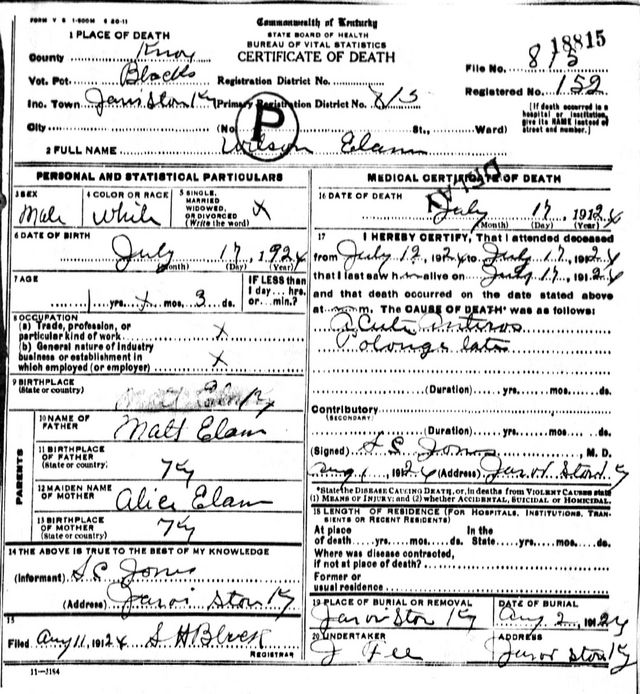 FORM V S 1-500M 6 20-11
Commonwealth of Kentucky
STATE BOARD OF HEALTH
BUREAU OF VITAL STATISTICS
CERTIFICATE OF DEATH
1 PLACE OF DEATH
County Knox
Vot. Pct. Blacks
Inc. Town
City
(No. St., Ward)
Registration District No.
Primary Registration District No. 815
File No. 815 18815
Registered No. 152
(If death occurred in a
hospital or institution,
give its NAME instead of
street and number.)
P
2 FULL NAME Wilson Elam
PERSONAL AND STATISTICAL PARTICULARS
3 SEX
Male
4 COLOR OR RACE
White
5 SINGLE,
MARRIED
WIDOWED,
OR DIVORCED
(Write the word)
x
6 DATE OF BIRTH
July 17, 1924
(Month) (Day) (Year)
7 AGE
yrs. x mos. 3 ds.
IF LESS than
1 day... hrs.
or... min.?
8 OCCUPATION
(a) Trade, profession, or
particular kind of work x
(b) General nature of industry
business or establishment in
which employed (or employer) x
9 BIRTHPLACE
(State or country)
Ky
PARENTS
10 NAME OF
FATHER
Matt Elam
11 BIRTHPLACE
OF FATHER
(State or country)
Ky
12 MAIDEN NAME
OF MOTHER
Alice Elam
13 BIRTHPLACE
OF MOTHER
(State or country)
Ky
14 THE ABOVE IS TRUE TO THE BEST OF MY KNOWLEDGE
(Informant) S C Jones
(Address) Ky
15
Filed Aug 11, 1924 S H Black
REGISTRAR
11-3184
MEDICAL CERTIFICATE OF DEATH
DELAY
16 DATE OF DEATH
July 17, 1924
(Month) (Day) (Year)
17 I HEREBY CERTIFY, That I attended deceased
from July 12, 1924 to July 17, 1924
that I last saw him alive on July 17, 1924
and that death occurred on the date stated above
at m. The CAUSE OF DEATH* was as follows:
Acute
(Duration) yrs. mos. ds.
Contributory
(SECONDARY)
(Duration) yrs. mos. ds.
(Signed) S C Jones, M. D.
Aug 1, 1924 (Address)
*State the DISEASE CAUSING DEATH, or, in deaths from VIOLENT CAUSES state
(1) MEANS OF INJURY; and (2) whether ACCIDENTAL, SUICIDAL or HOMICIDAL.
18 LENGTH OF RESIDENCE (FOR HOSPITALS, INSTITUTIONS, TRAN-
SIENTS OR RECENT RESIDENTS)
At place In the
of death yrs. mos. ds. State yrs. mos. ds.
Where was disease contracted,
if not at place of death?
Former or
usual residence
19 PLACE OF BURIAL OR REMOVAL
Ky
DATE OF BURIAL
Aug 2, 1924
20 UNDERTAKER
J Fee
ADDRESS
Ky